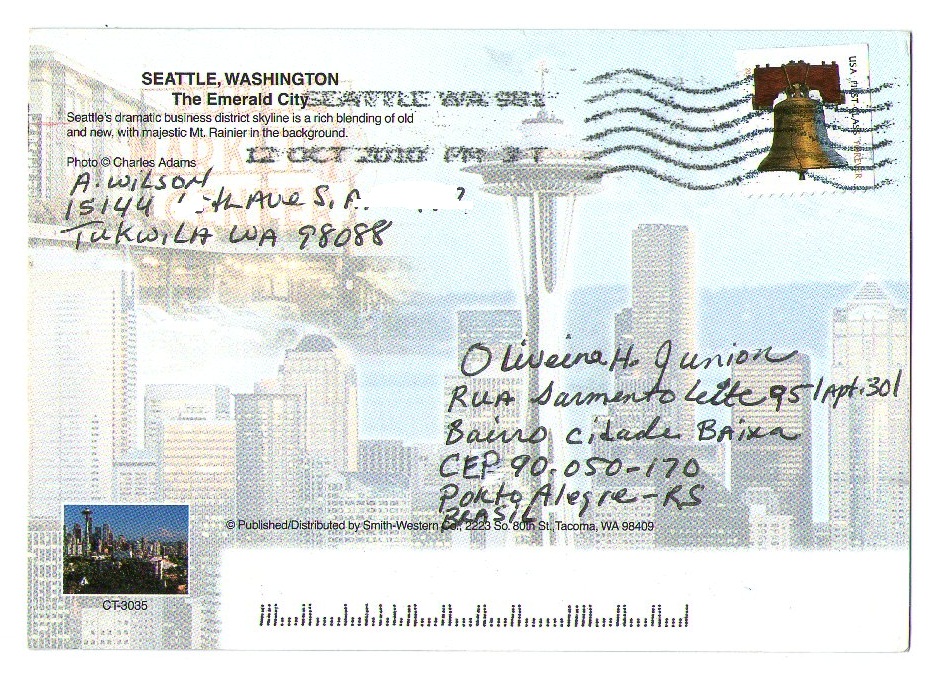 SEATTLE, WASHINGTON
The Emerald City
Seattle's dramatic business district skyline is a rich blending of old
and new, with majestic Mt. Rainier in the background.
Photo © Charles Adams
SEATTLE WA 981
12 OCT 2010 PM 3 T
USA FIRST-CLASS FOREVER
A. WILSON
15144 thAVE S.
TUKWILA WA 98088
Oliveira H. Junior
RUA Sarmento Leite 95/Apt.301
Bairro cidade Baixa
CEP 90.050-170
Porto Alegre-RS
BRASIL
© Published/Distributed by Smith-Western Co., 2223 So. 80th St., Tacoma, WA 98409
CT-3035